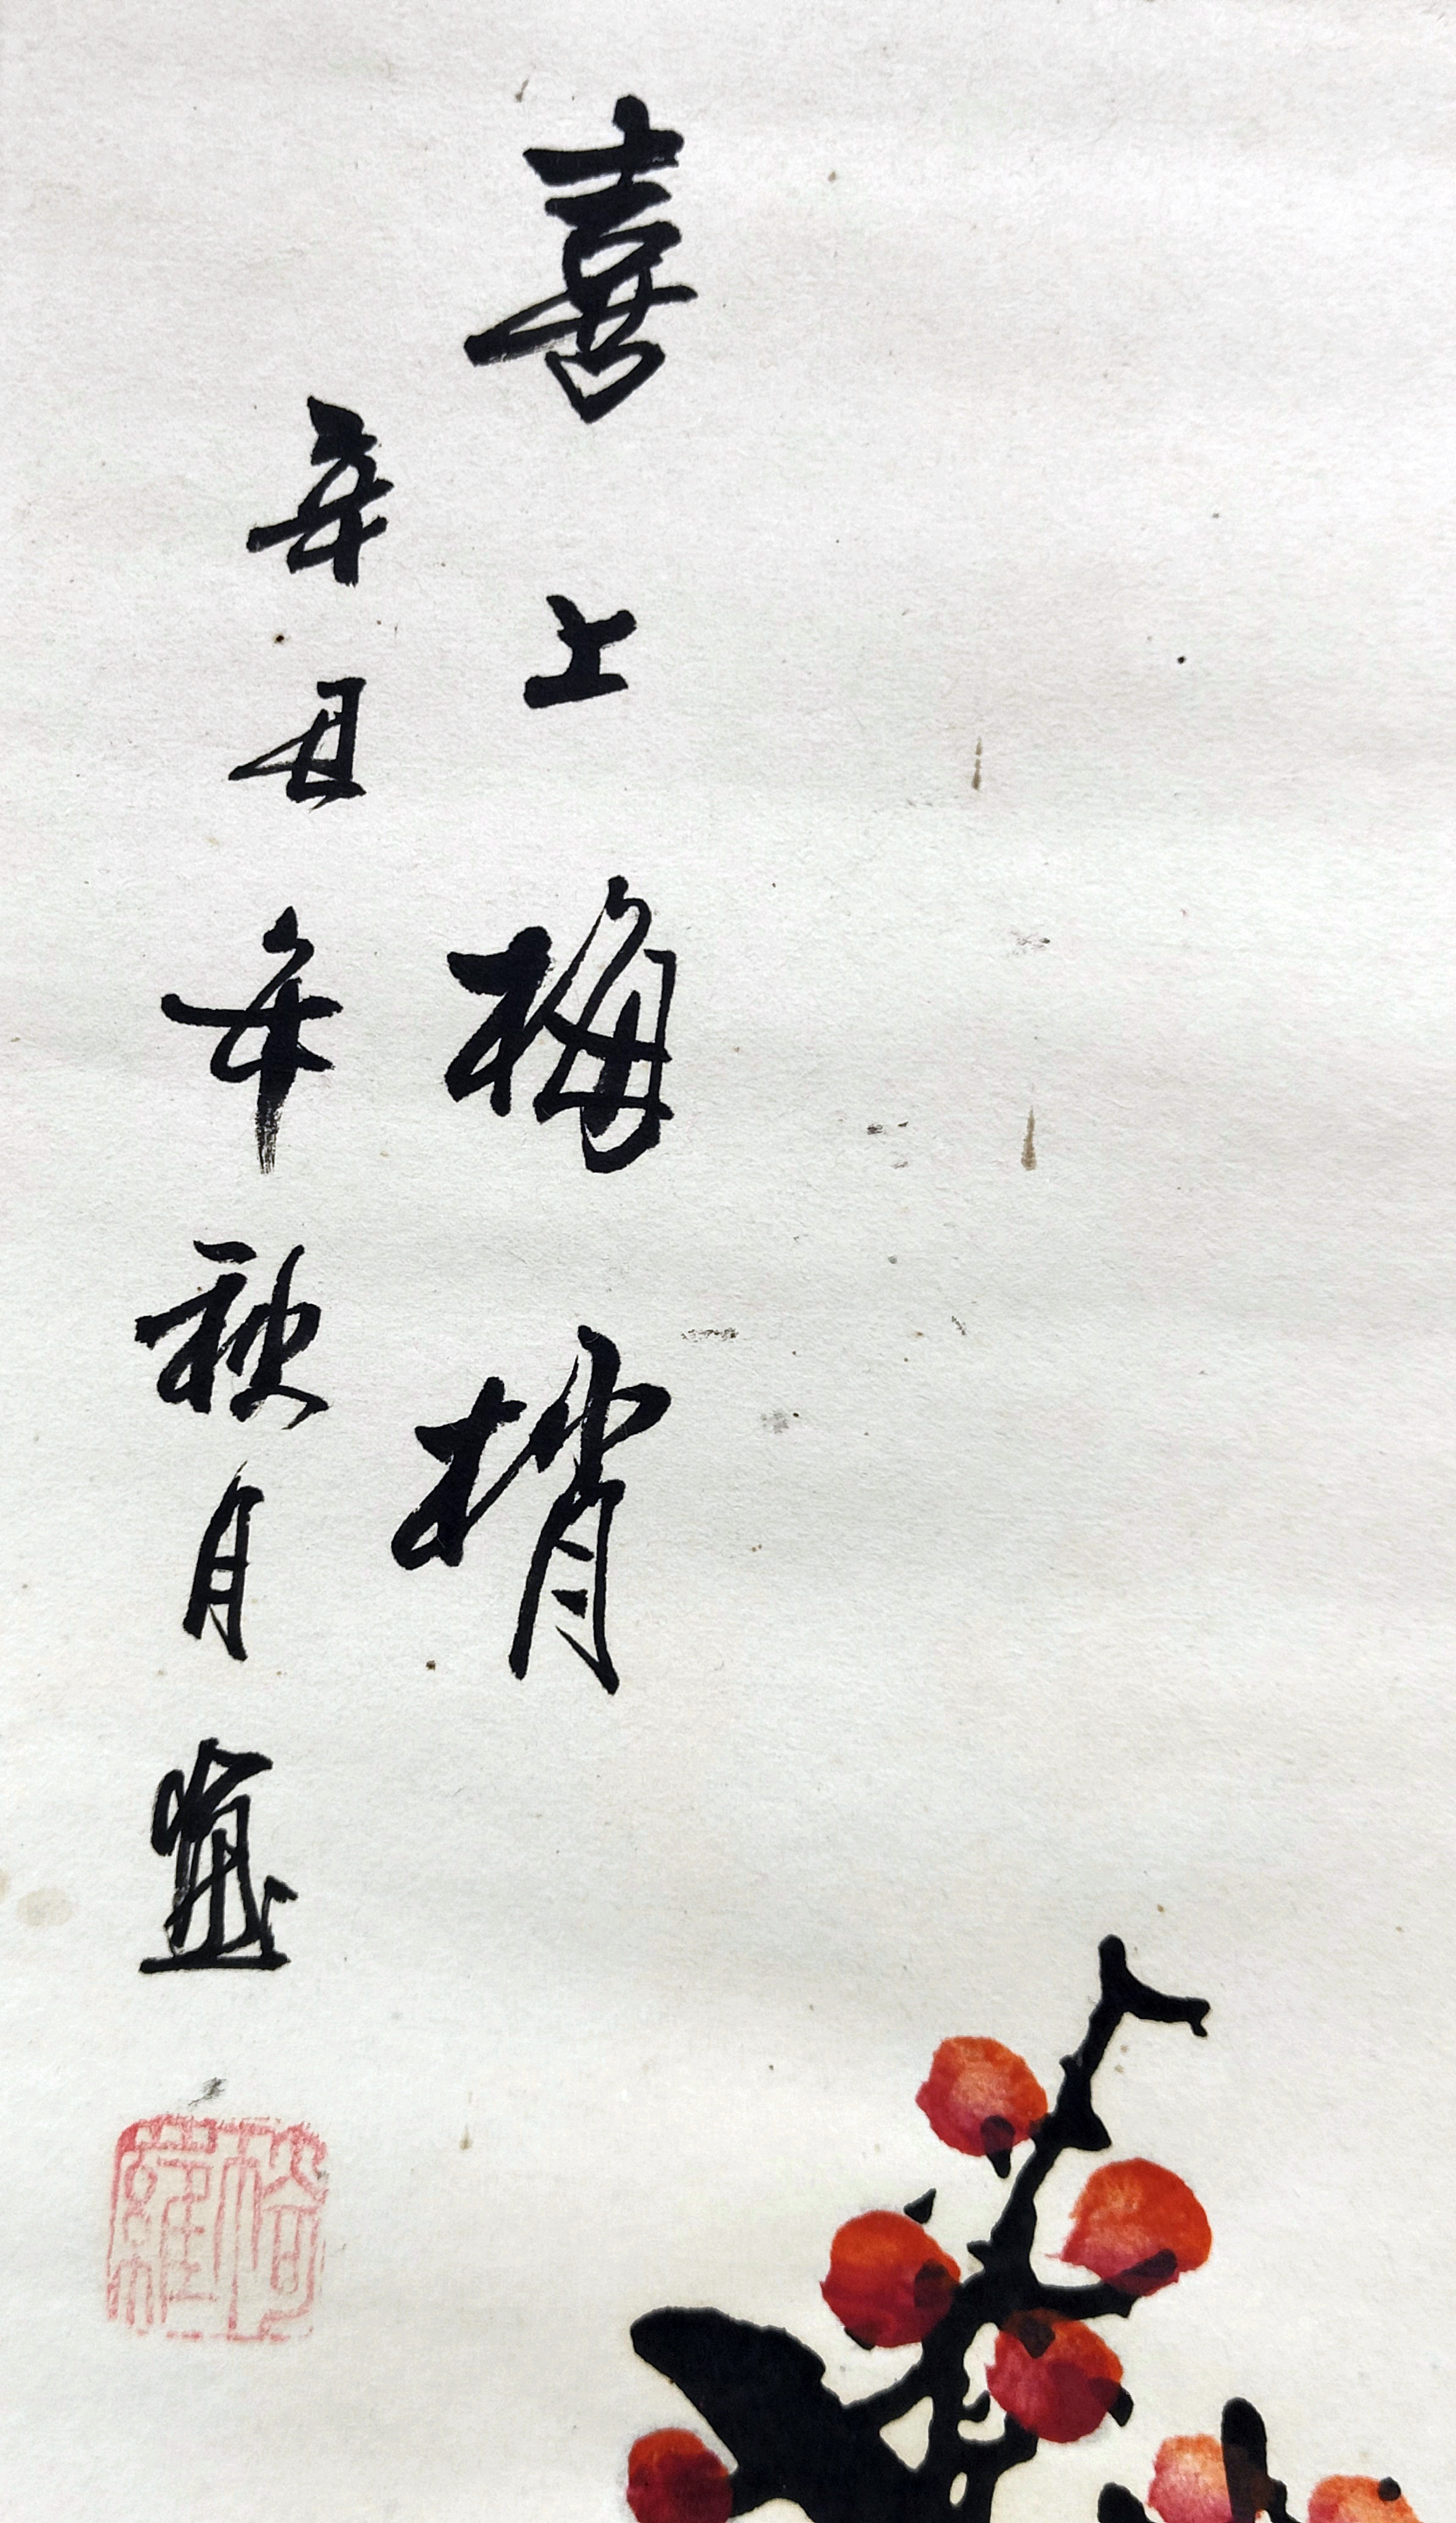 喜上梅梢
辛丑年秋月画